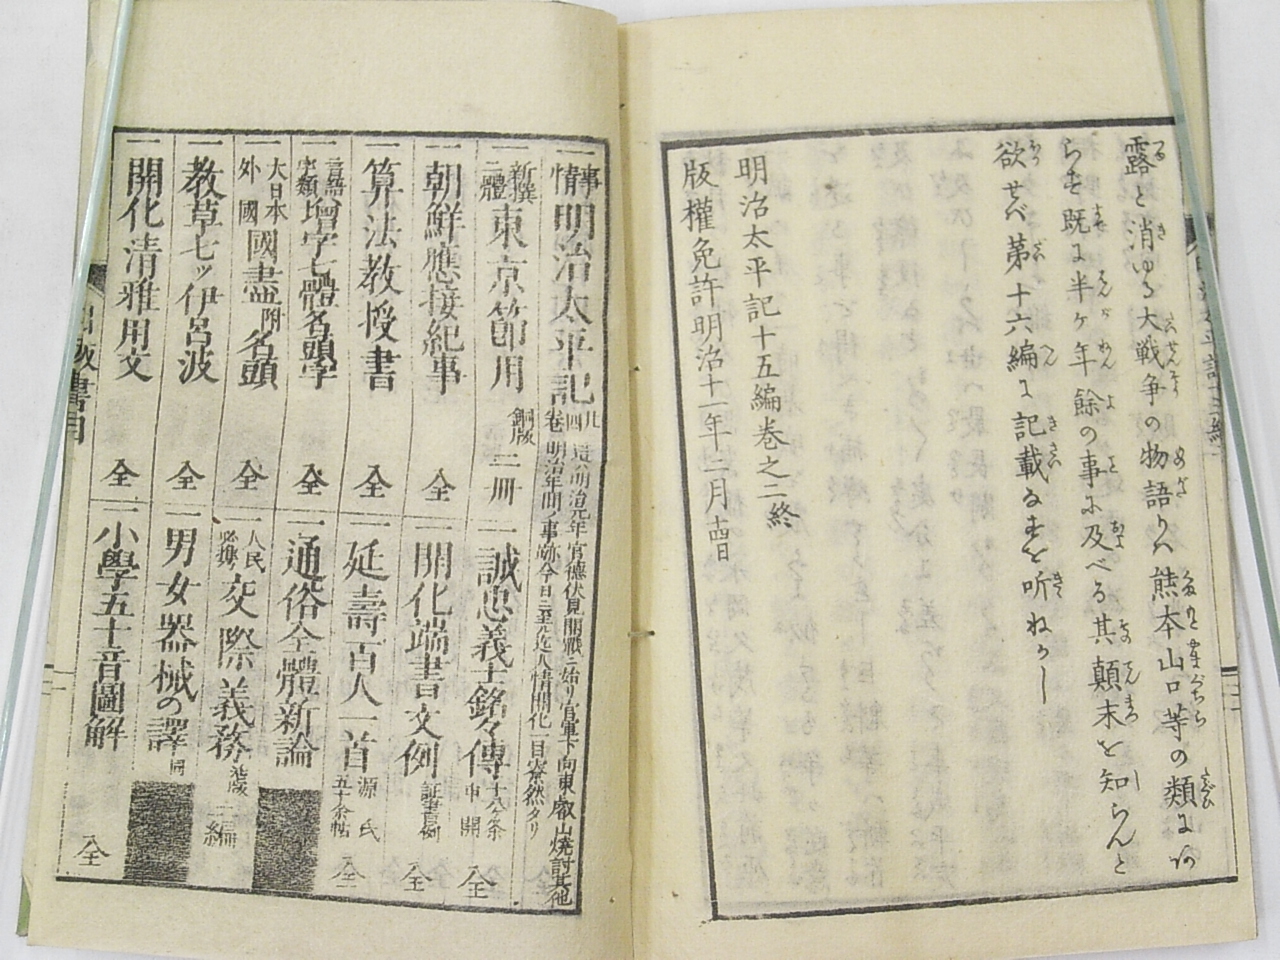 露と消ゆる大戦争の物語りハ熊本山口等の類にあ
らず既に半ケ年餘の事に及べる其顛末を知らんと
欲せバ第十六編に記載なすを听ねかし
明治太平記十五編巻之二終
版權免許明治十一年二月十四日
一事情明治太平記
廿四卷
明治元年官德伏見開戰ニ始リ官軍下向東叡山燒討其他
明治年間ノ事跡今日ニ至ル迄人情開化一目寮然タリ
一新撰二體東京節用 銅版 二冊
一誠忠義士銘々傳 十八ケ条申開 全
一朝鮮應接紀事 全
一開化端書文例 証書百例 全
一算法教授書 全
一延壽百人一首 源氏五十余帖 全
一言語字類增字七體名頭字 全
一通俗全體新論
一大日本外國國盡附名頭 全
一人民必携交際義務 二編
一教草七ッ伊呂波 全
一男女器械の譯 同
一開化清雅用文 全
一小學五十音圖解 全
出版書目